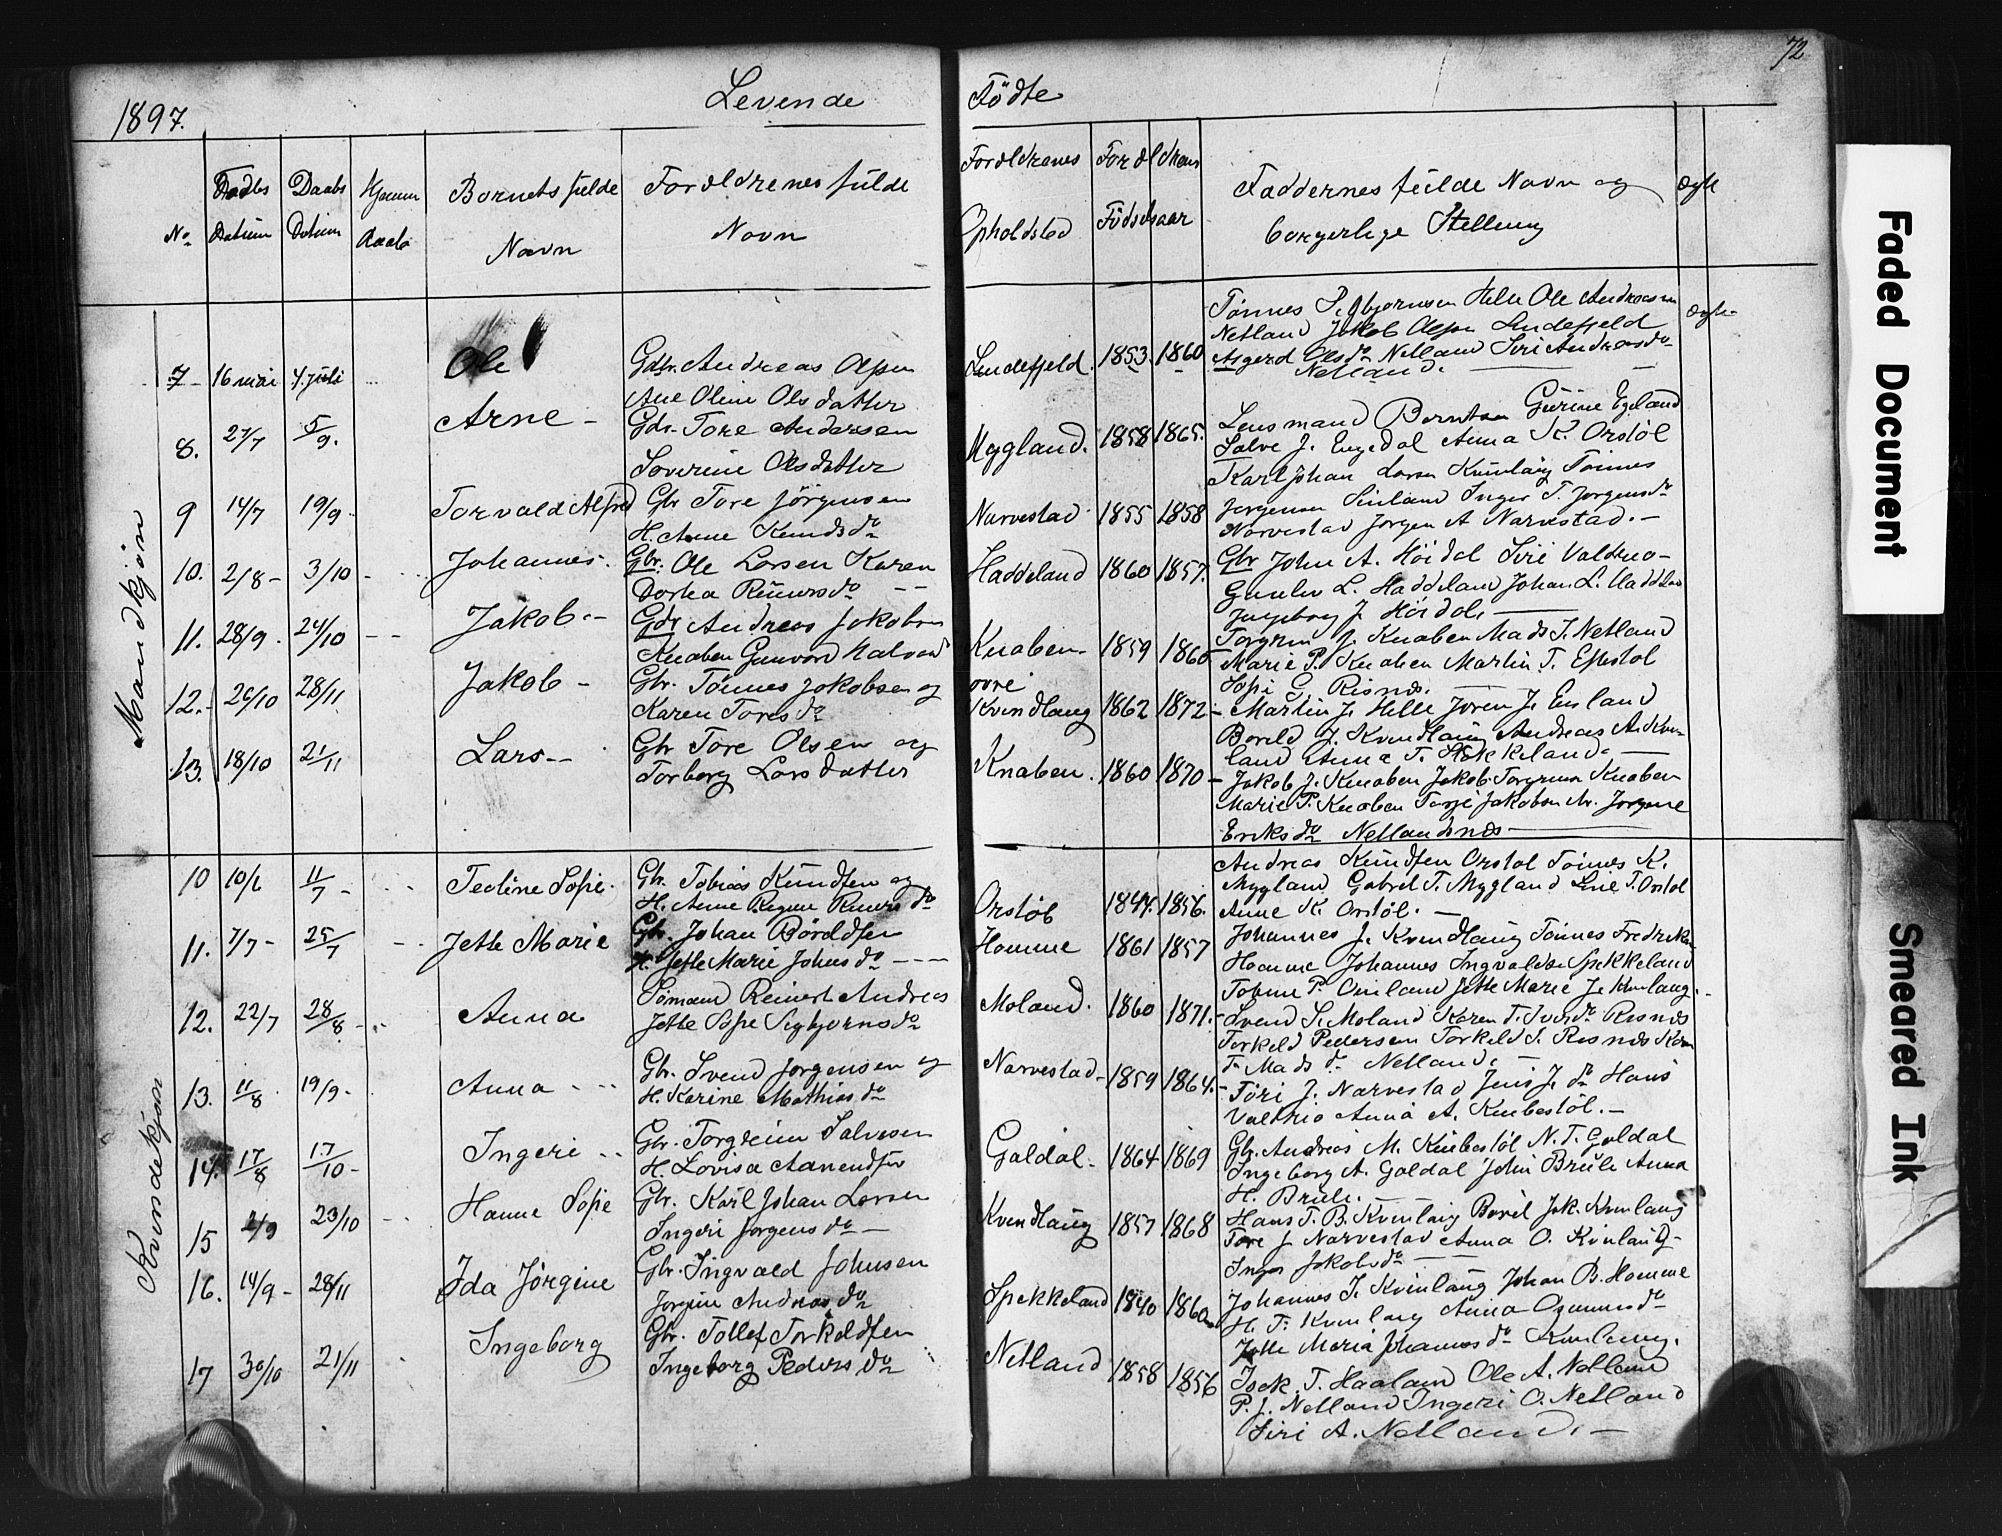 72
1897. Levende Födte
No Fødts Datum Daabs Datum Hjemme daab Barnets fulde Navn Forældrenes fulde Navn Forældrenes Opholdsted Forældrens Födselsaar Faddernes fulde Navn og borgerlige Stelling Ægte
Mandkjön
7 - 16 mai 4. juli Ole Gdbr. Andreas Olsen
Ane Oline Olsdatter
Lindefjeld. 1853. 1860
Tönnes Helle Ole Andreassen
Netland Jakob Olsen Lindefjeld
Asgerd Olsdr Netland Siri Andreasdr
Netland.
Ægte
8. 27/7 5/9. Arne - Gdr. Tore Andersen
Soverine Olsdatter
Mygland. 1858 1865.
Lensmand Berntsen Gurine Egeland
Salve J. Engedal Anna K. Orstöl
9 14/7 19/9 Torvald Alfred Gbr Tore Jörgensen
H. Anne Knudsdr
Narvestad 1855 1858
Karl Johan Larsen Kvinlaug Tönnes
Jorgensen Sinland Inger T. Jorgensdr
Narvestad Jorgen A Narvestad. -
10. 2/8 - 3/10 - Johannes. Gbr. Ole Larsen Karen
Dortea Reinersdr
Haddeland 1860 1857.
Gbr John A. Höidal Siri Valdmo -
Gunlev L. Haddeland Johan L. Haddeland
Ingeborg J. Höidal.
11. 28/9 - 24/10 Jakob. - Gdr Andreas Jakobsen
Knaben Gunvord Halvord
Knaben. 1859 1860
Torgrim J. Knaben Mads T. Netland
Marie P. Knaben Martin T. Eftestöl
Sofie G. Risnes.
12. - 26/10 28/11 Jakob - Gbr. Tönnes Jakobsen og
Karen Toresdr
ovre
Kvindlaug 1862 1872 -
Martin J. Helle Joren J. Eieland
Boreld J. Kvindlaug Andreas A. Kvin-
land Anna T. Spekkeland. -
13. 18/10 21/11 Lars - - Gbr Tore Olsen og
Torborg Larsdatter
Knaben. 1860 1870 -
Jakob J. Knaben Jakob Torgrimsen Knaben
Marie P. Knaben Terje Jakobsen Jorgine
Eriksdr Netlandsnes
Kvindekjön
10 10/6 11/7 - Teoline Sofie. Gbr. Tobias Knudsen og
H. Anne Regine Reinersdr
Orstöl 1847. 1856.
Andreas Knudsen Orstöl Tönnes K.
Mygland Gabrel T. Mygland Line T. Orstöl
Anne K. Orstöl. -
11. 7/7 - 25/7 Jette Marie Gbr. Johan Böreldsen
H. Jette Marie Johnsdr - - -
Homme 1861 1857
Johannes J. Kvindlaug Tönnes Fredriksen
Homme Johannes Ingvaldsen Spekkeland
Tobine P. Omland Jette Marie J. Kvinlaug. -
12. 22/7 28/8 - Anna Sömand Reinert Andreas
Jette Sofie Segbjornsdr
Moland. 1860 1871. -
Svend S. Moland Karen T. Risnes
Torkeld Pedersen Torkeld S. Risnes Karen
T. Madsdr Netland. -
13. 11/8 19/9 - Anna - - Gbr. Svend Jorgensen og
H. Karine Mathiasdr
Narvestad - 1859 1864. -
Töri J. Narvestad Jens J. do Hans
Valdmo Anna A. Knibestöl. -
14. 17/8 17/10 - Ingeri - - Gbr. Torgreim Salvesen
H. Lovisa Aanendsen
Galdal. - 1864 1869
Gbr. Andreas M. Knibestöl N. T. Galdal
Ingeborg A. Galdal John Brüle Anna
H. Brüle.
15 2/9 23/10 - Hanne Sofie Gbr. Karl Johan Larsen
Ingeri Jorgensdr -
Kvindlaug 1857 1868
Hans T. B. Kvinlaug Borel Jak. Kvinlaug
Tore J Narvestad Anna O. Kvinlaug -
Inger Jakobsdr
16. 14/9 - 28/11 Ida Jörgine Gbr. Ingvald Johnsen
Jorgine Andreasdr
Spekkeland 1840 1860
Johannes J. Kvinlaug Johan B. Homme
H. T. Kvinlaug Anna Ommundsdr
Jette Maria Johannesdr Kvinlaug.
17 30/10 21/11 Ingeborg Gbr. Tollef Torkeldsen
Ingeborg Pedersdr
Netland 1858 1856
Isak T. Haaland Ole A. Netland
P. J. Netland Ingeri O. Netland
Siri A. Netland. -
Faded Document
Smeared Ink